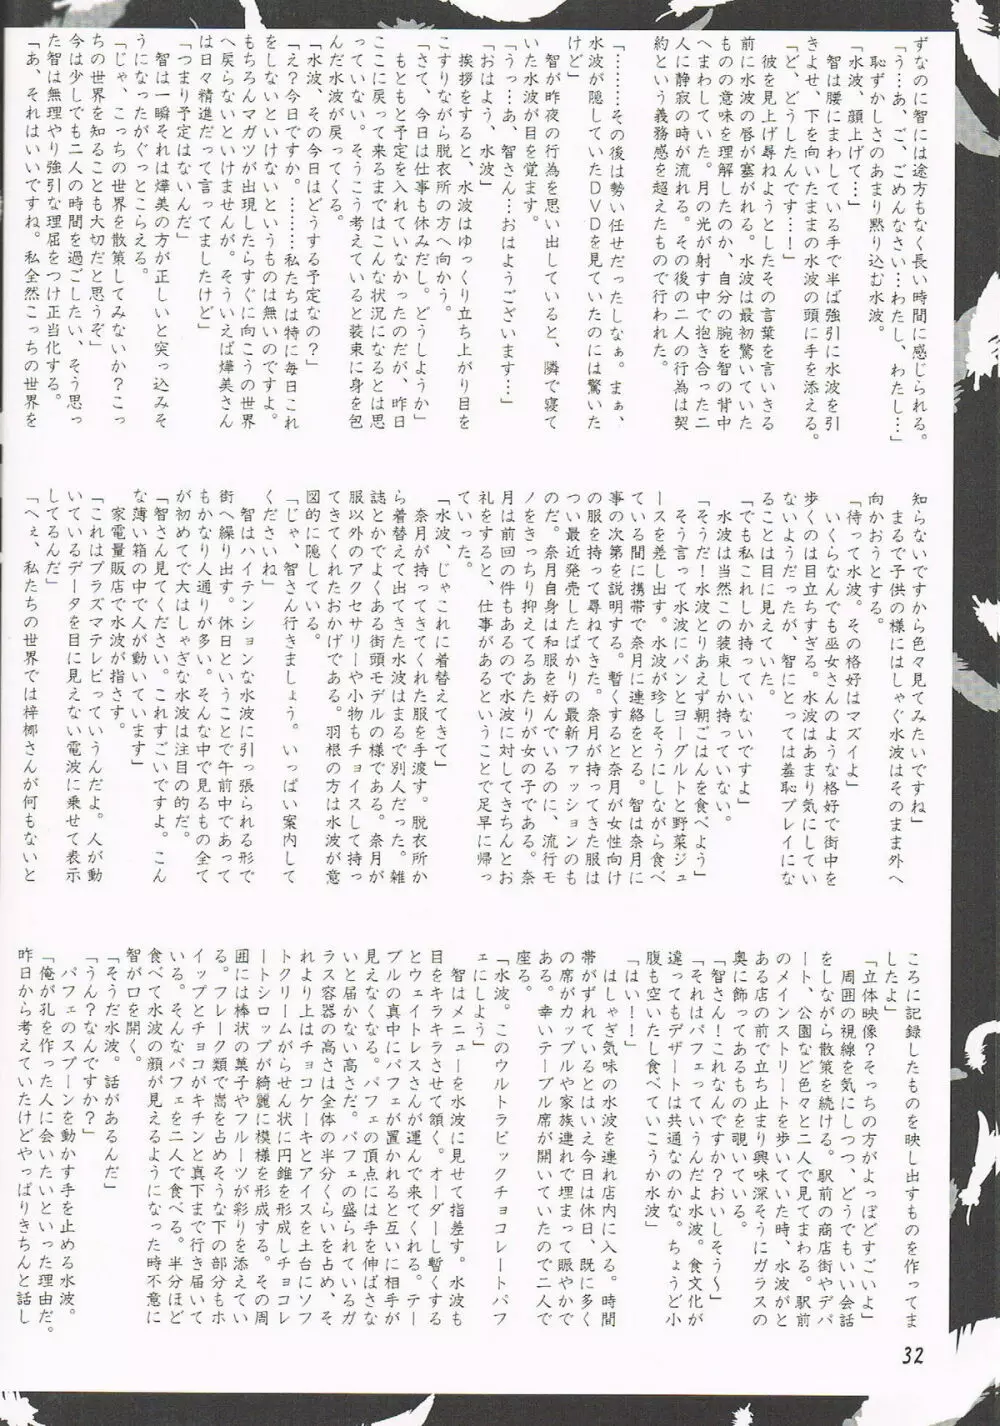 ずなのに智には途方もなく長い時間に感じられる。
「う…あ、ご、ごめんなさい…わたし、わたし…」
恥ずかしさのあまり黙り込む水波。
「水波、顔上げて…」
智は腰にまわしている手で半ば強引に水波を引
きよせ、下を向いたままの水波の頭に手を添える。
「ど、どうしたんです…！」
彼を見上げ尋ねようとしたその言葉を言いきる
前に水波の唇が塞がれる。水波は最初驚いていた
ものの意味を理解したのか、自分の腕を智の背中
へまわしていた。月の光が射す中で抱き合った二
人に静寂の時が流れる。その後の二人の行為は契
約という義務感を超えたもので行われた。
「………その後は勢い任せだったしなぁ。まぁ、
水波が隠していたＤＶＤを見ていたのには驚いた
けど」
智が昨夜の行為を思い出していると、隣で寝て
いた水波が目を覚ます。
「うっ…あ、智さん…おはようございます…」
「おはよう、水波」
挨拶をすると、水波はゆっくり立ち上がり目を
こすりながら脱衣所の方へ向かう。
「さて、今日は仕事も休みだし。どうしようか」
もともと予定を入れていなかったのだが、昨日
ここに戻って来るまではこんな状況になるとは思
っていない。そうこう考えていると装束に身を包
んだ水波が戻ってくる。
「水波、その今日はどうする予定なの？」
「え？今日ですか。………私たちは特に毎日これ
をしないといけないというものは無いのですよ。
もちろんマガツが出現したらすぐに向こうの世界
へ戻らないといけませんが。そういえば燁美さん
は日々精進だって言ってましたけど」
「つまり予定はないんだ」
智は一瞬それは燁美の方が正しいと突っ込みそ
うになったがぐっとこらえる。
「じゃ、こっちの世界を散策してみないか？こっ
ちの世界を知ることも大切だと思うぞ」
今は少しでも二人の時間を過ごしたい、そう思っ
た智は無理やり強引な理屈をつけ正当化する。
「あ、それはいいですね。私全然こっちの世界を
知らないですから色々見てみたいですね」
まるで子供の様にはしゃぐ水波はそのまま外へ
向かおうとする。
「待って水波。その格好はマズイよ」
いくらなんでも巫女さんのような格好で街中を
歩くのは目立ちすぎる。水波はあまり気にしてい
ないようだったが、智にとっては羞恥プレイにな
ることは目に見えていた。
「でも私これしか持っていないですよ」
水波は当然この装束しか持っていない。
「そうだ！水波とりあえず朝ごはんを食べよう」
そう言って水波にパンとヨーグルトと野菜ジュ
ースを差し出す。水波が珍しそうにしながら食べ
ている間に携帯で奈月に連絡をとる。智は奈月に
事の次第を説明する。暫くすると奈月が女性向け
の服を持って尋ねてきた。奈月が持ってきた服は
つい最近発売したばかりの最新ファッションのも
のだ。奈月自身は和服を好んでいるのに、流行モ
ノをきっちり抑えてるあたりが女の子である。奈
月は前回の件もあるので水波に対してきちんとお
礼をすると、仕事があるということで足早に帰っ
ていった。
「水波、じゃこれに着替えてきて」
奈月が持ってきてくれた服を手渡す。脱衣所か
ら着替えて出てきた水波はまるで別人だった。雑
誌とかでよくある街頭モデルの様である。奈月が
服以外のアクセサリーや小物もチョイスして持っ
てきてくれたおかげである。羽根の方は水波が意
図的に隠している。
「じゃ、智さん行きましょう。いっぱい案内して
くださいね」
智はハイテンションな水波に引っ張られる形で
街へ繰り出す。休日ということで午前中であって
もかなり人通りが多い。そんな中で見るもの全て
が初めてで大はしゃぎな水波は注目の的だ。
「智さん見てください。これすごいですよ。こん
な薄い箱の中で人が動いています」
家電量販店で水波が指さす。
「これはプラズマテレビっていうんだよ。人が動
いているデータを目に見えない電波に乗せて表示
してるんだ」
「へぇ、私たちの世界では梓梛さんが何もないと
ころに記録したものを映し出すものを作ってま
したよ」
「立体映像？そっちの方がよっぽどすごいよ」
周囲の視線を気にしつつ、どうでもいい会話
をしながら散策を続ける。駅前の商店街やデパ
ート、公園など色々と二人で見てまわる。駅前
のメインストリートを歩いていた時、水波がと
ある店の前で立ち止まり興味深そうにガラスの
奥に飾ってあるものを覗いている。
「智さん！これなんですか？おいしそう～」
「それはパフェっていうんだよ水波。食文化が
違ってもデザートは共通なのかな。ちょうど小
腹も空いたし食べていこうか水波」
「はい！！」
はしゃぎ気味の水波を連れ店内に入る。時間
帯がずれているとはいえ今日は休日、既に多く
の席がカップルや家族連れで埋まって賑やかで
ある。幸いテーブル席が開いていたので二人で
座る。
「水波。このウルトラビックチョコレートパフ
ェにしよう」
智はメニューを水波に見せて指差す。水波も
目をキラキラさせて頷く。オーダーし暫くする
とウェイトレスさんが運んで来てくれる。テー
ブルの真中にパフェが置かれると互いに相手が
見えなくなる。パフェの頂点には手を伸ばさな
いと届かない高さだ。パフェの盛られているガ
ラス容器の高さは全体の半分くらいを占め、そ
れより上はチョコケーキとアイスを土台にソフ
トクリームがらせん状に円錐を形成しチョコレ
ートシロップが綺麗に模様を形成する。その周
囲には棒状の菓子やフルーツが彩りを添えてい
る。フレーク類で嵩を占めそうな下の部分もホ
イップとチョコがキチンと真下まで行き届いて
いる。そんなパフェを二人で食べる。半分ほど
食べて水波の顔が見えるようになった時不意に
智が口を開く。
「そうだ水波。話があるんだ」
「うん？なんですか？」
パフェのスプーンを動かす手を止める水波。
「俺が孔を作った人に会いたいといった理由だ。
昨日から考えていたけどやっぱりきちんと話し
32